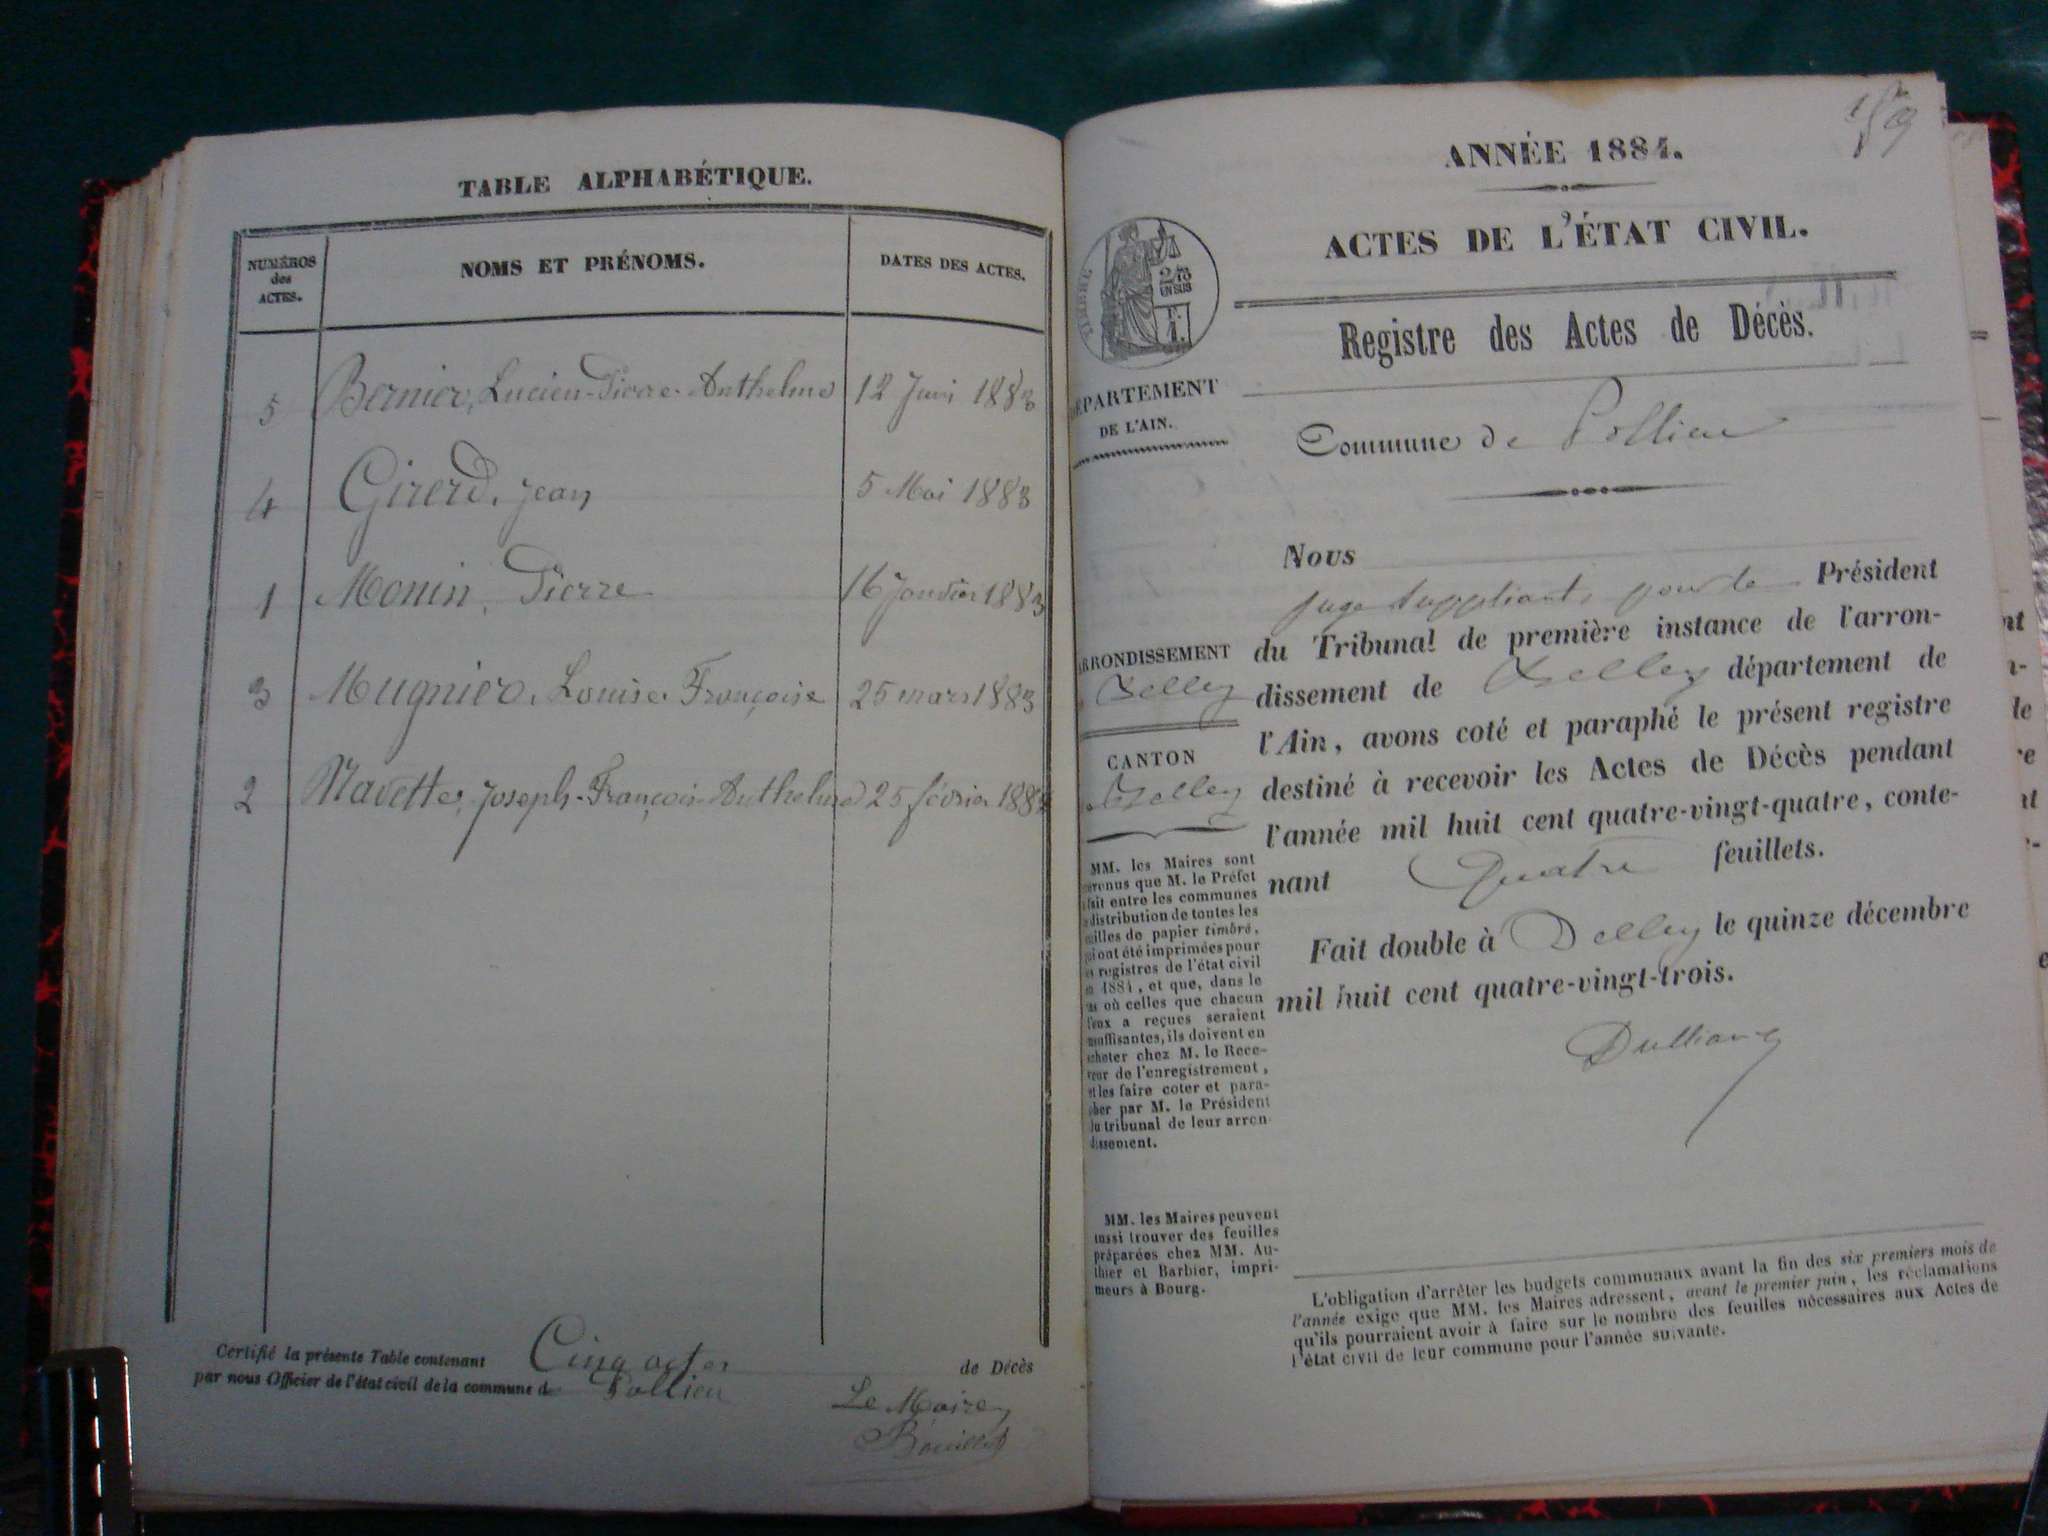 TABLE ALPHABÉTIQUE.
NUMÉROS
des
ACTES.
NOMS ET PRÉNOMS.
DATES DES ACTES.
5 Bernier, Lucien-Pierre-Anthelme 12 Juin 1883
4 Girerd, Jean 5 Mai 1883
1 Monin, Pierre 16 Janvier 1883
3 Mugnier, Louise Françoise 25 mars 1883
2 Navette, Joseph-François-Anthelme 25 février 1883
Certifié la présente Table contenant Cinq actes de Décès
par nous Officier de l'état civil de la commune de Pollieu
Le Maire
159
ANNÉE 1884.
ACTES DE L'ÉTAT CIVIL.
TIMBRE
2/10
EN SUS
Registre des Actes de Décès.
DÉPARTEMENT
DE L'AIN.
Commune de Pollieu
Nous
juge suppléant, pour le Président
du Tribunal de première instance de l'arron-
dissement de Belley département de
l'Ain, avons coté et paraphé le présent registre
destiné à recevoir les Actes de Décès pendant
l'année mil huit cent quatre-vingt-quatre, conte-
nant Quatre feuillets.
Fait double à Belley le quinze décembre
mil huit cent quatre-vingt-trois.
ARRONDISSEMENT
Belley
CANTON
Belley
MM. les Maires sont
prévenus que M. le Préfet
fait entre les communes
distribution de toutes les
feuilles de papier timbré,
qui ont été imprimées pour
les registres de l'état civil
en 1884, et que, dans le
cas où celles que chacun
d'eux a reçues seraient
insuffisantes, ils doivent en
acheter chez M. le Rece-
veur de l'enregistrement,
et les faire coter et para-
pher par M. le Président
du tribunal de leur arron-
dissement.
MM. les Maires peuvent
aussi trouver des feuilles
préparées chez MM. Au-
thier et Barbier, impri-
meurs à Bourg.
L'obligation d'arrêter les budgets communaux avant la fin des six premiers mois de
l'année exige que MM. les Maires adressent, avant le premier juin, les réclamations
qu'ils pourraient avoir à faire sur le nombre des feuilles nécessaires aux Actes de
l'état civil de leur commune pour l'année suivante.